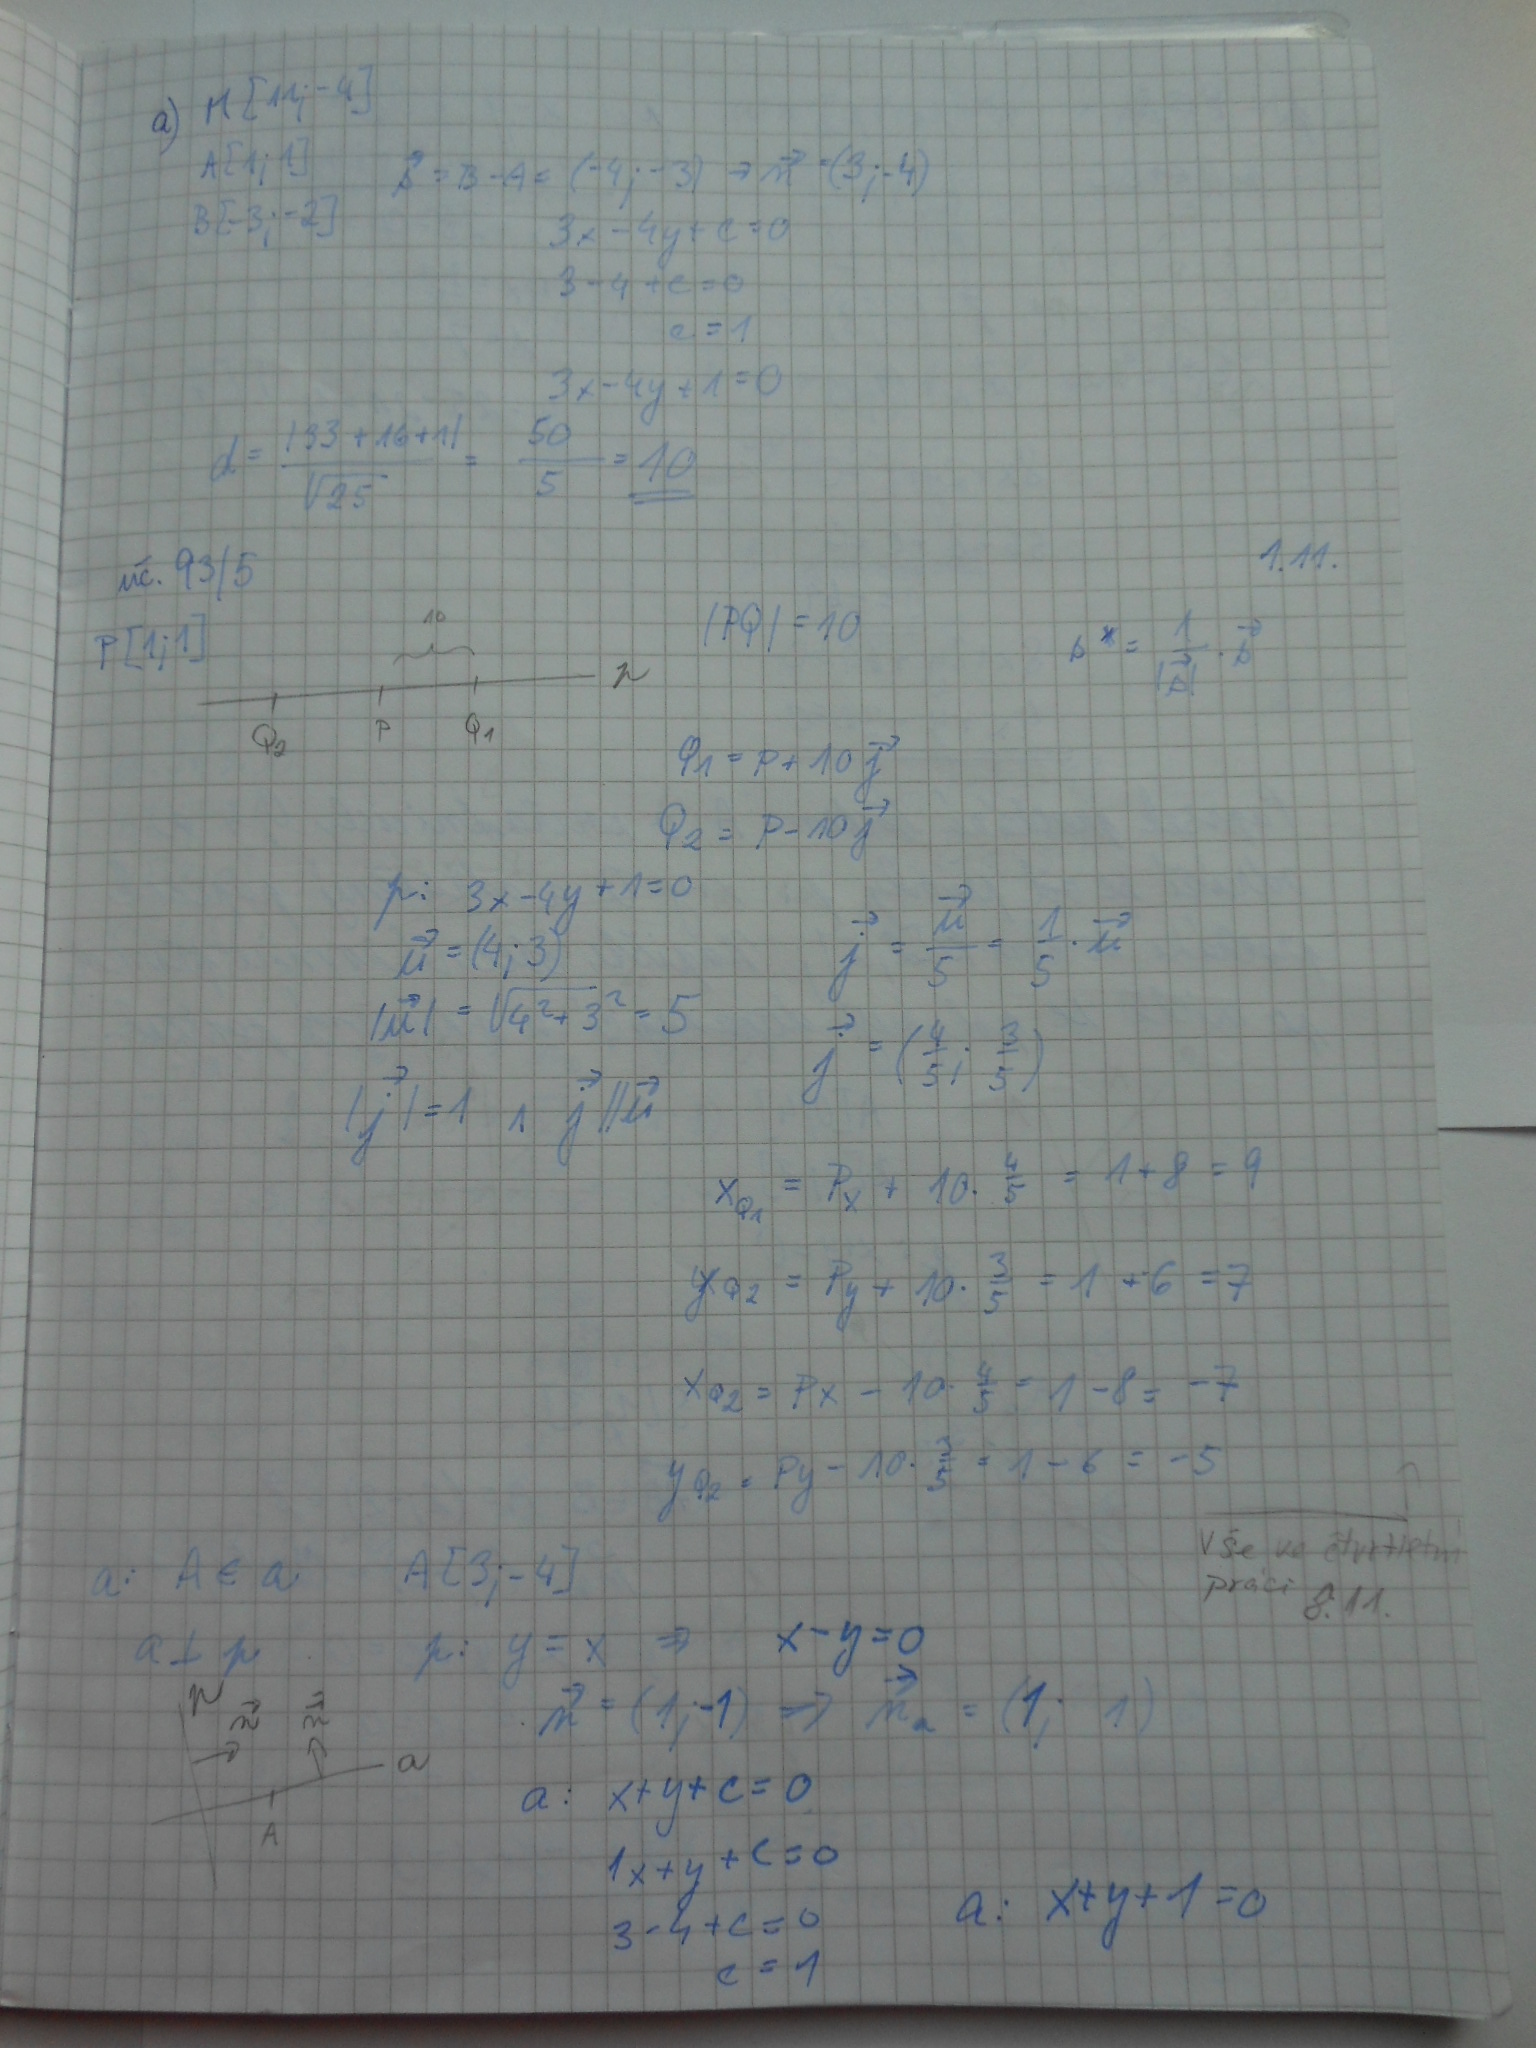 a) M[11;-4]
A[1;1]
B[-3;-2]
s⃗ = B-A = (-4;-3) → n⃗ = (3;-4)
3x-4y+c=0
3-4+c=0
c=1
3x-4y+1=0
d = |33+16+1| / √25 = 50/5 = 10
uč. 93/5
1.11.
P[1;1]
10
|PQ| = 10
s* = 1/|s⃗| · s⃗
p
Q₂ P Q₁
Q₁ = P+10j⃗
Q₂ = P-10j⃗
p: 3x-4y+1=0
u⃗ = (4;3)
|u⃗| = √4²+3² = 5
|j⃗| = 1 ∧ j⃗ || u⃗
j⃗ = u⃗/5 = 1/5 · u⃗
j⃗ = (4/5; 3/5)
x_Q₁ = Px + 10·4/5 = 1+8 = 9
y_Q₂ = Py + 10·3/5 = 1+6 = 7
x_Q₂ = Px - 10·4/5 = 1-8 = -7
y_Q₂ = Py - 10·3/5 = 1-6 = -5
Vše ve čtvrtletní
práci 8.11.
a: A∈a A[3;-4]
a⊥p p: y=x ⇒ x-y=0
n⃗ = (1;-1) ⇒ n⃗ₐ = (1; 1)
p n⃗ n⃗ a
A
a: x+y+c=0
1x+y+c=0
3-4+c=0
c=1
a: x+y+1=0